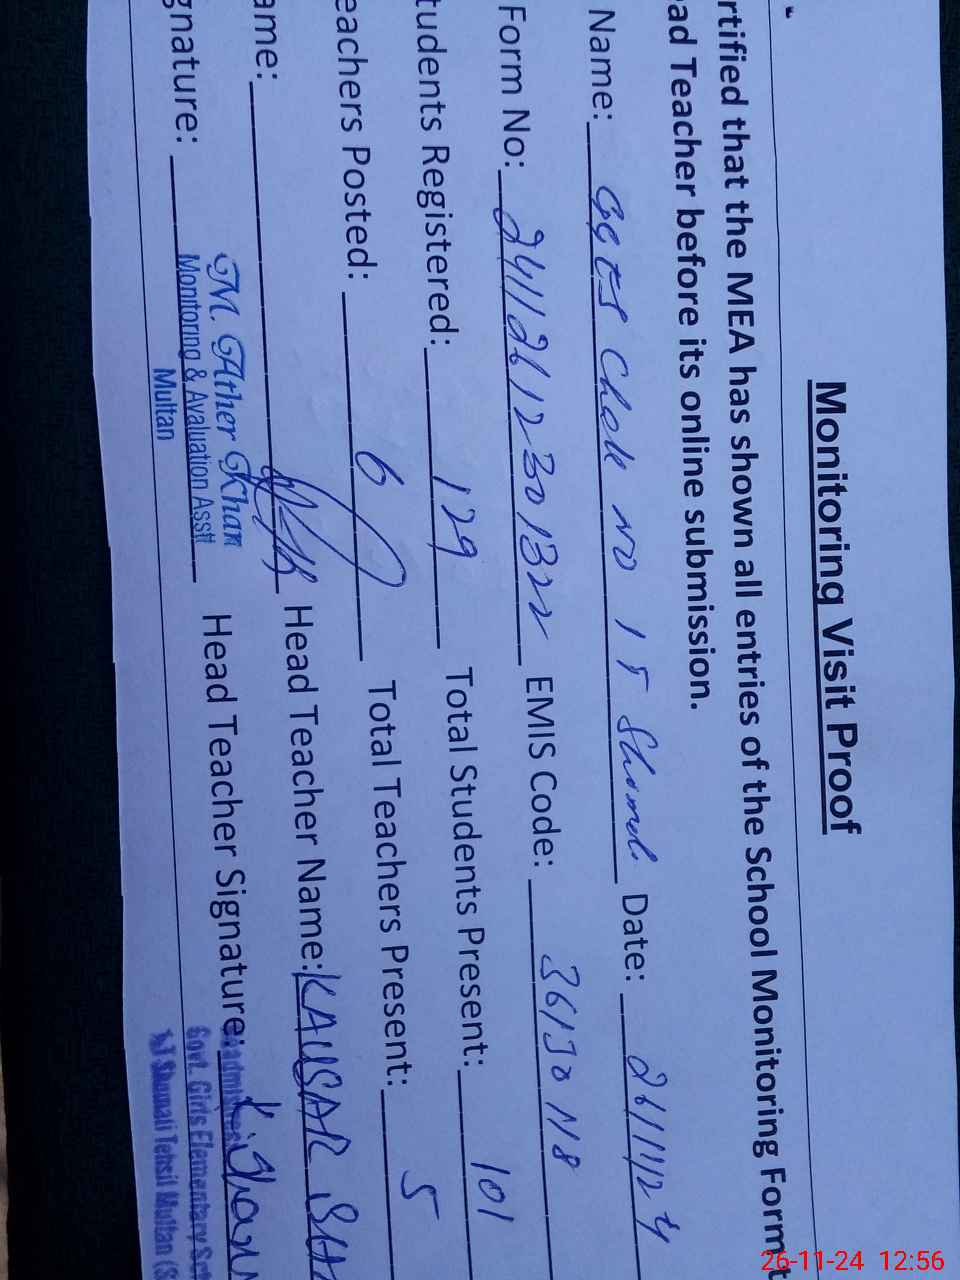 Monitoring Visit Proof
rtified that the MEA has shown all entries of the School Monitoring Form t
ad Teacher before its online submission.
Name: GGES Chak No 18 Date: 26/11/24
Form No: 24112612301322 EMIS Code:
tudents Registered: 129 Total Students Present: 101
eachers Posted: 6 Total Teachers Present: 5
ame: Head Teacher Name: KAUSAR SHA
gnature: M. Ather Khan Head Teacher Signature:
Monitoring & Avaluation Asstt
Multan
Govt. Girls Elementary Sch
Tehsil Multan (S
26-11-24 12:56